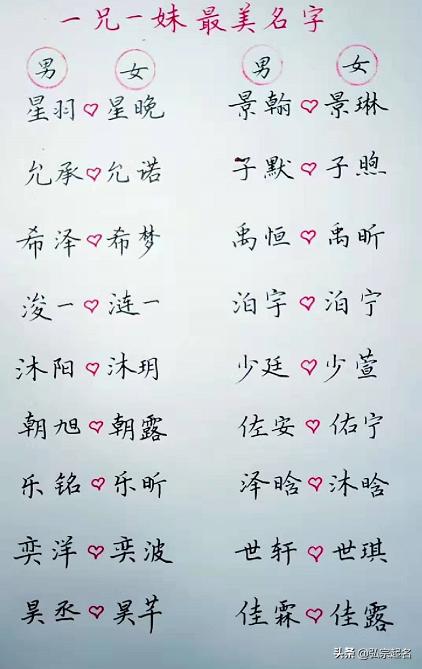 一兄一妹最美名字
男 女 男 女
星羽♡星晚 景翰♡景琳
允承♡允诺 子默♡子煦
希泽♡希梦 禹恒♡禹昕
浚一♡涟一 泊宇♡泊宁
沐阳♡沐玥 少廷♡少萱
朝旭♡朝露 佐安♡佑宁
乐铭♡乐昕 泽晗♡沐晗
奕洋♡奕波 世轩♡世琪
昊丞♡昊芊 佳霖♡佳露
头条 @弘宗起名